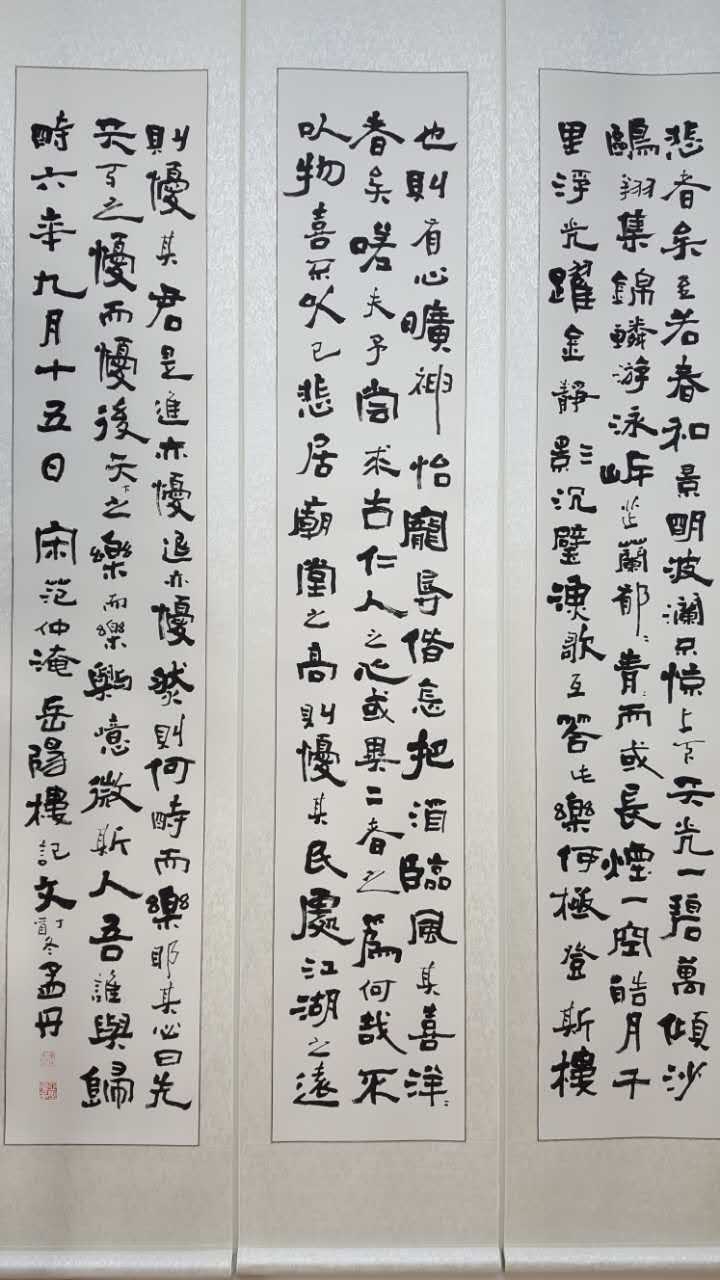 悲者矣至若春和景明波瀾不惊上下天光一碧萬傾沙
鷗翔集錦鱗游泳岸芷蘭郁〻青〻而或長煙一空皓月千
里浮光躍金靜影沉璧漁歌互答此樂何極登斯樓
也則有心曠神怡寵辱偕忘把酒臨風其喜洋〻
者矣嗟夫予嘗求古仁人之心或異二者之為何哉不
以物喜不以己悲居廟堂之高則懮其民處江湖之遠
則懮其君是進亦懮退亦懮然則何時而樂耶其必曰先
天下之懮而懮後天下之樂而樂歟噫微斯人吾誰與歸
時六年九月十五日 宋范仲淹岳陽樓記文 丁酉冬孟丹